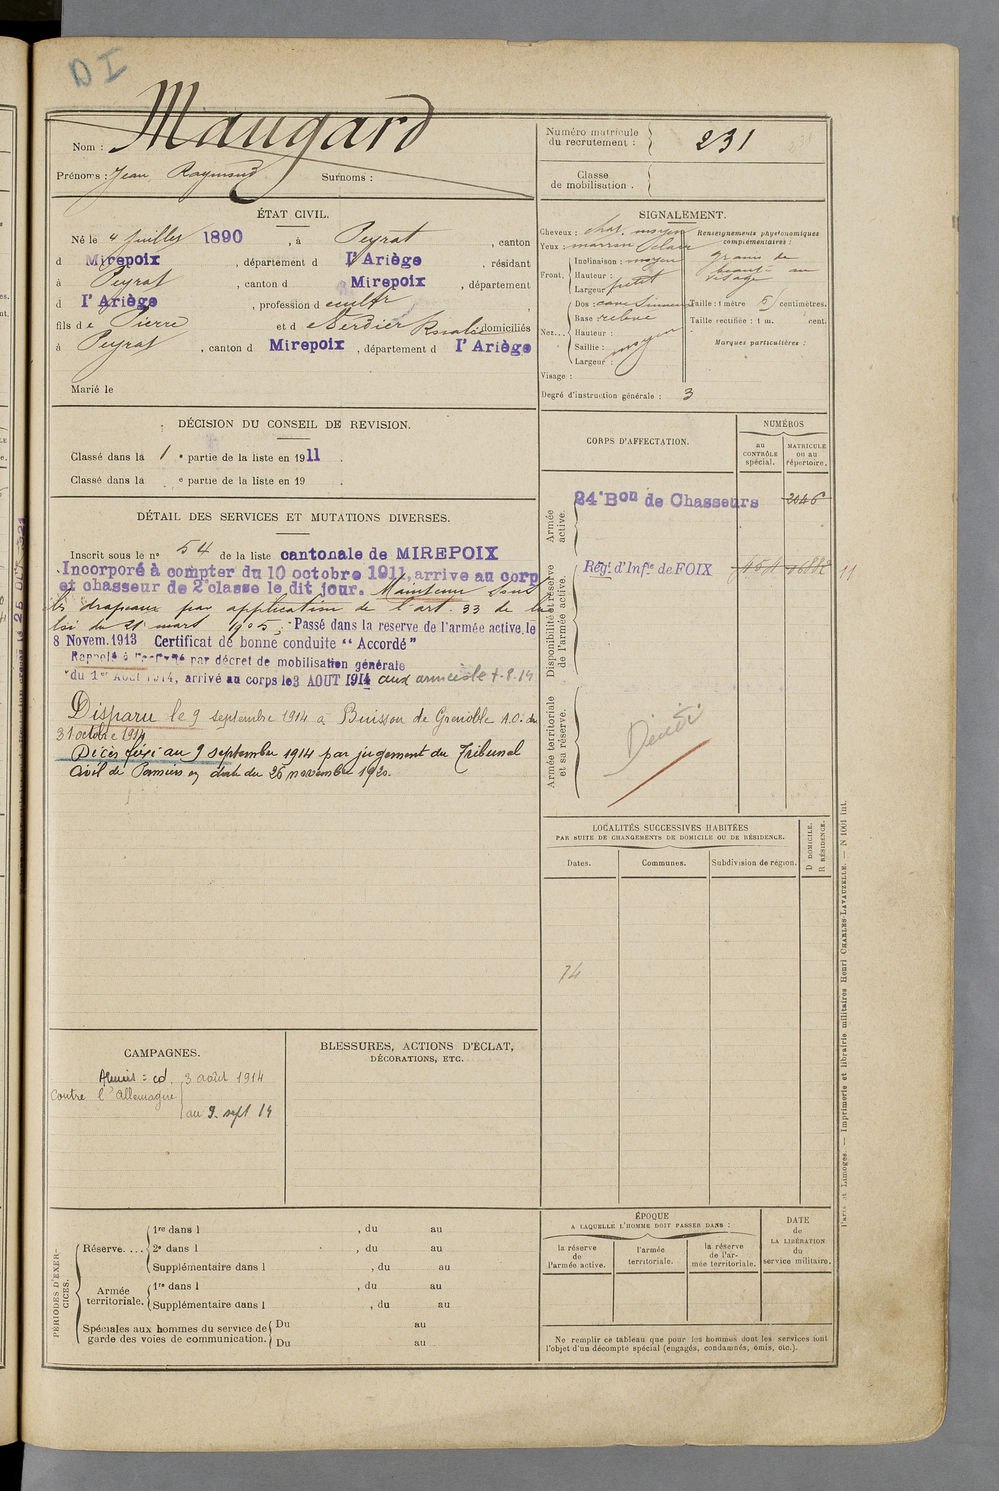 DI
Nom : Maugard
Prénoms : Jean Raymond Surnoms :
Numéro matricule du recrutement : 231
Classe de mobilisation .
ÉTAT CIVIL.
Né le 4 juillet 1890 , à Peyrat , canton
d Mirepoix , département d l'Ariège , résidant
à Peyrat , canton d Mirepoix , département
d l'Ariège , profession d cultr
fils de Pierre et de Verdier Rosalie domiciliés
à Peyrat , canton d Mirepoix , département d l'Ariège
Marié le
SIGNALEMENT.
Cheveux : chat. moyen
Yeux : marron clair
Front. Inclinaison : moyen
Hauteur :
Largeur : petit
Nez... Dos : cave sinueux
Base : relevé
Hauteur :
Saillie : moyen
Largeur :
Visage :
Renseignements physionomiques complémentaires :
grains de
beauté au
visage
Taille : 1 mètre 5 centimètres.
Taille rectifiée : 1 m. cent.
Marques particulières :
Degré d'instruction générale : 3
DÉCISION DU CONSEIL DE REVISION.
Classé dans la 1 e partie de la liste en 1911 .
Classé dans la e partie de la liste en 19 .
CORPS D'AFFECTATION.
NUMÉROS
au CONTRÔLE spécial.
MATRICULE ou au répertoire.
Armée active.
24e Bon de Chasseurs 2046
Disponibilité et réserve de l'armée active.
Régt d'Infie de FOIX
11
Armée territoriale et sa réserve.
Décédé
DÉTAIL DES SERVICES ET MUTATIONS DIVERSES.
Inscrit sous le n° 54 de la liste cantonale de MIREPOIX
Incorporé à compter du 10 octobre 1911, arrive au corps
et chasseur de 2e classe le dit jour. Maintenu sous
les drapeaux par application de l'art. 33 de la
loi du 21 mars 1905, Passé dans la reserve de l'armée active, le
8 Novem. 1913 Certificat de bonne conduite "Accordé"
Rappelé à l'activité par décret de mobilisation générale
du 1er AOUT 1914, arrivé au corps le 3 AOUT 1914 aux armées le 7-8-14
Disparu le 9 septembre 1914 à Buisson de Grenoble A.O. du
31 octobre 1914
Décès fixé au 9 September 1914 par jugement du Tribunal
Civil de Pamiers en date du 25 novembre 1920.
LOCALITÉS SUCCESSIVES HABITÉES
PAR SUITE DE CHANGEMENTS DE DOMICILE OU DE RÉSIDENCE.
Dates. Communes. Subdivision de région. D DOMICILE. R RÉSIDENCE.
74
CAMPAGNES.
contre l'Allemagne 3 août 1914
au 9. sept 14
BLESSURES, ACTIONS D'ÉCLAT,
DÉCORATIONS, ETC.
PÉRIODES D'EXERCICES.
Réserve.... 1re dans l , du au
2e dans l , du au
Supplémentaire dans l , du au
Armée territoriale. 1re dans l , du au
Supplémentaire dans l , du au
Spéciales aux hommes du service de garde des voies de communication. Du au
Du au
ÉPOQUE
A LAQUELLE L'HOMME DOIT PASSER DANS :
la réserve de l'armée active.
l'armée territoriale.
la réserve de l'armée territoriale.
DATE de LA LIBÉRATION du service militaire.
Ne remplir ce tableau que pour les hommes dont les services font
l'objet d'un décompte spécial (engagés, condamnés, omis, etc.).
Paris et Limoges. — Imprimerie et librairie militaires Henri CHARLES-LAVAUZELLE. — N 1001 int.